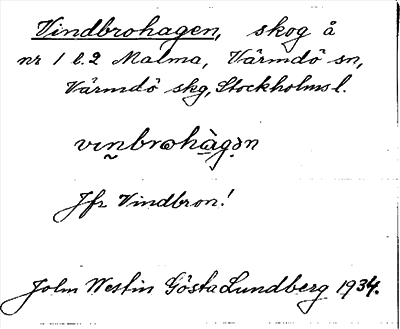 Vindbrohagen, skog å
nr 1 l. 2 Malma, Värmdö sn,
Värmdö skg, Stockholms l.
vın̰brωhàgən
Jfr Vindbron!
John Westin Gösta Lundberg 1934.